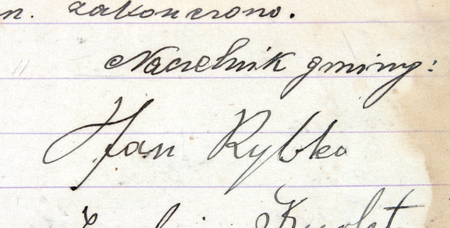 n. zakończono.
Naczelnik gminy:
Jan Rybka